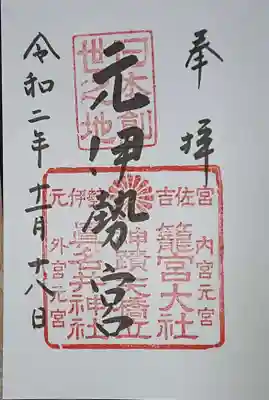 奉拝
日本創世之地
元伊勢宮
元伊勢 吉佐宮
内宮元宮
籠宮大社
神蹟天橋立
眞名井神社
外宮元宮
令和二年十一月十八日